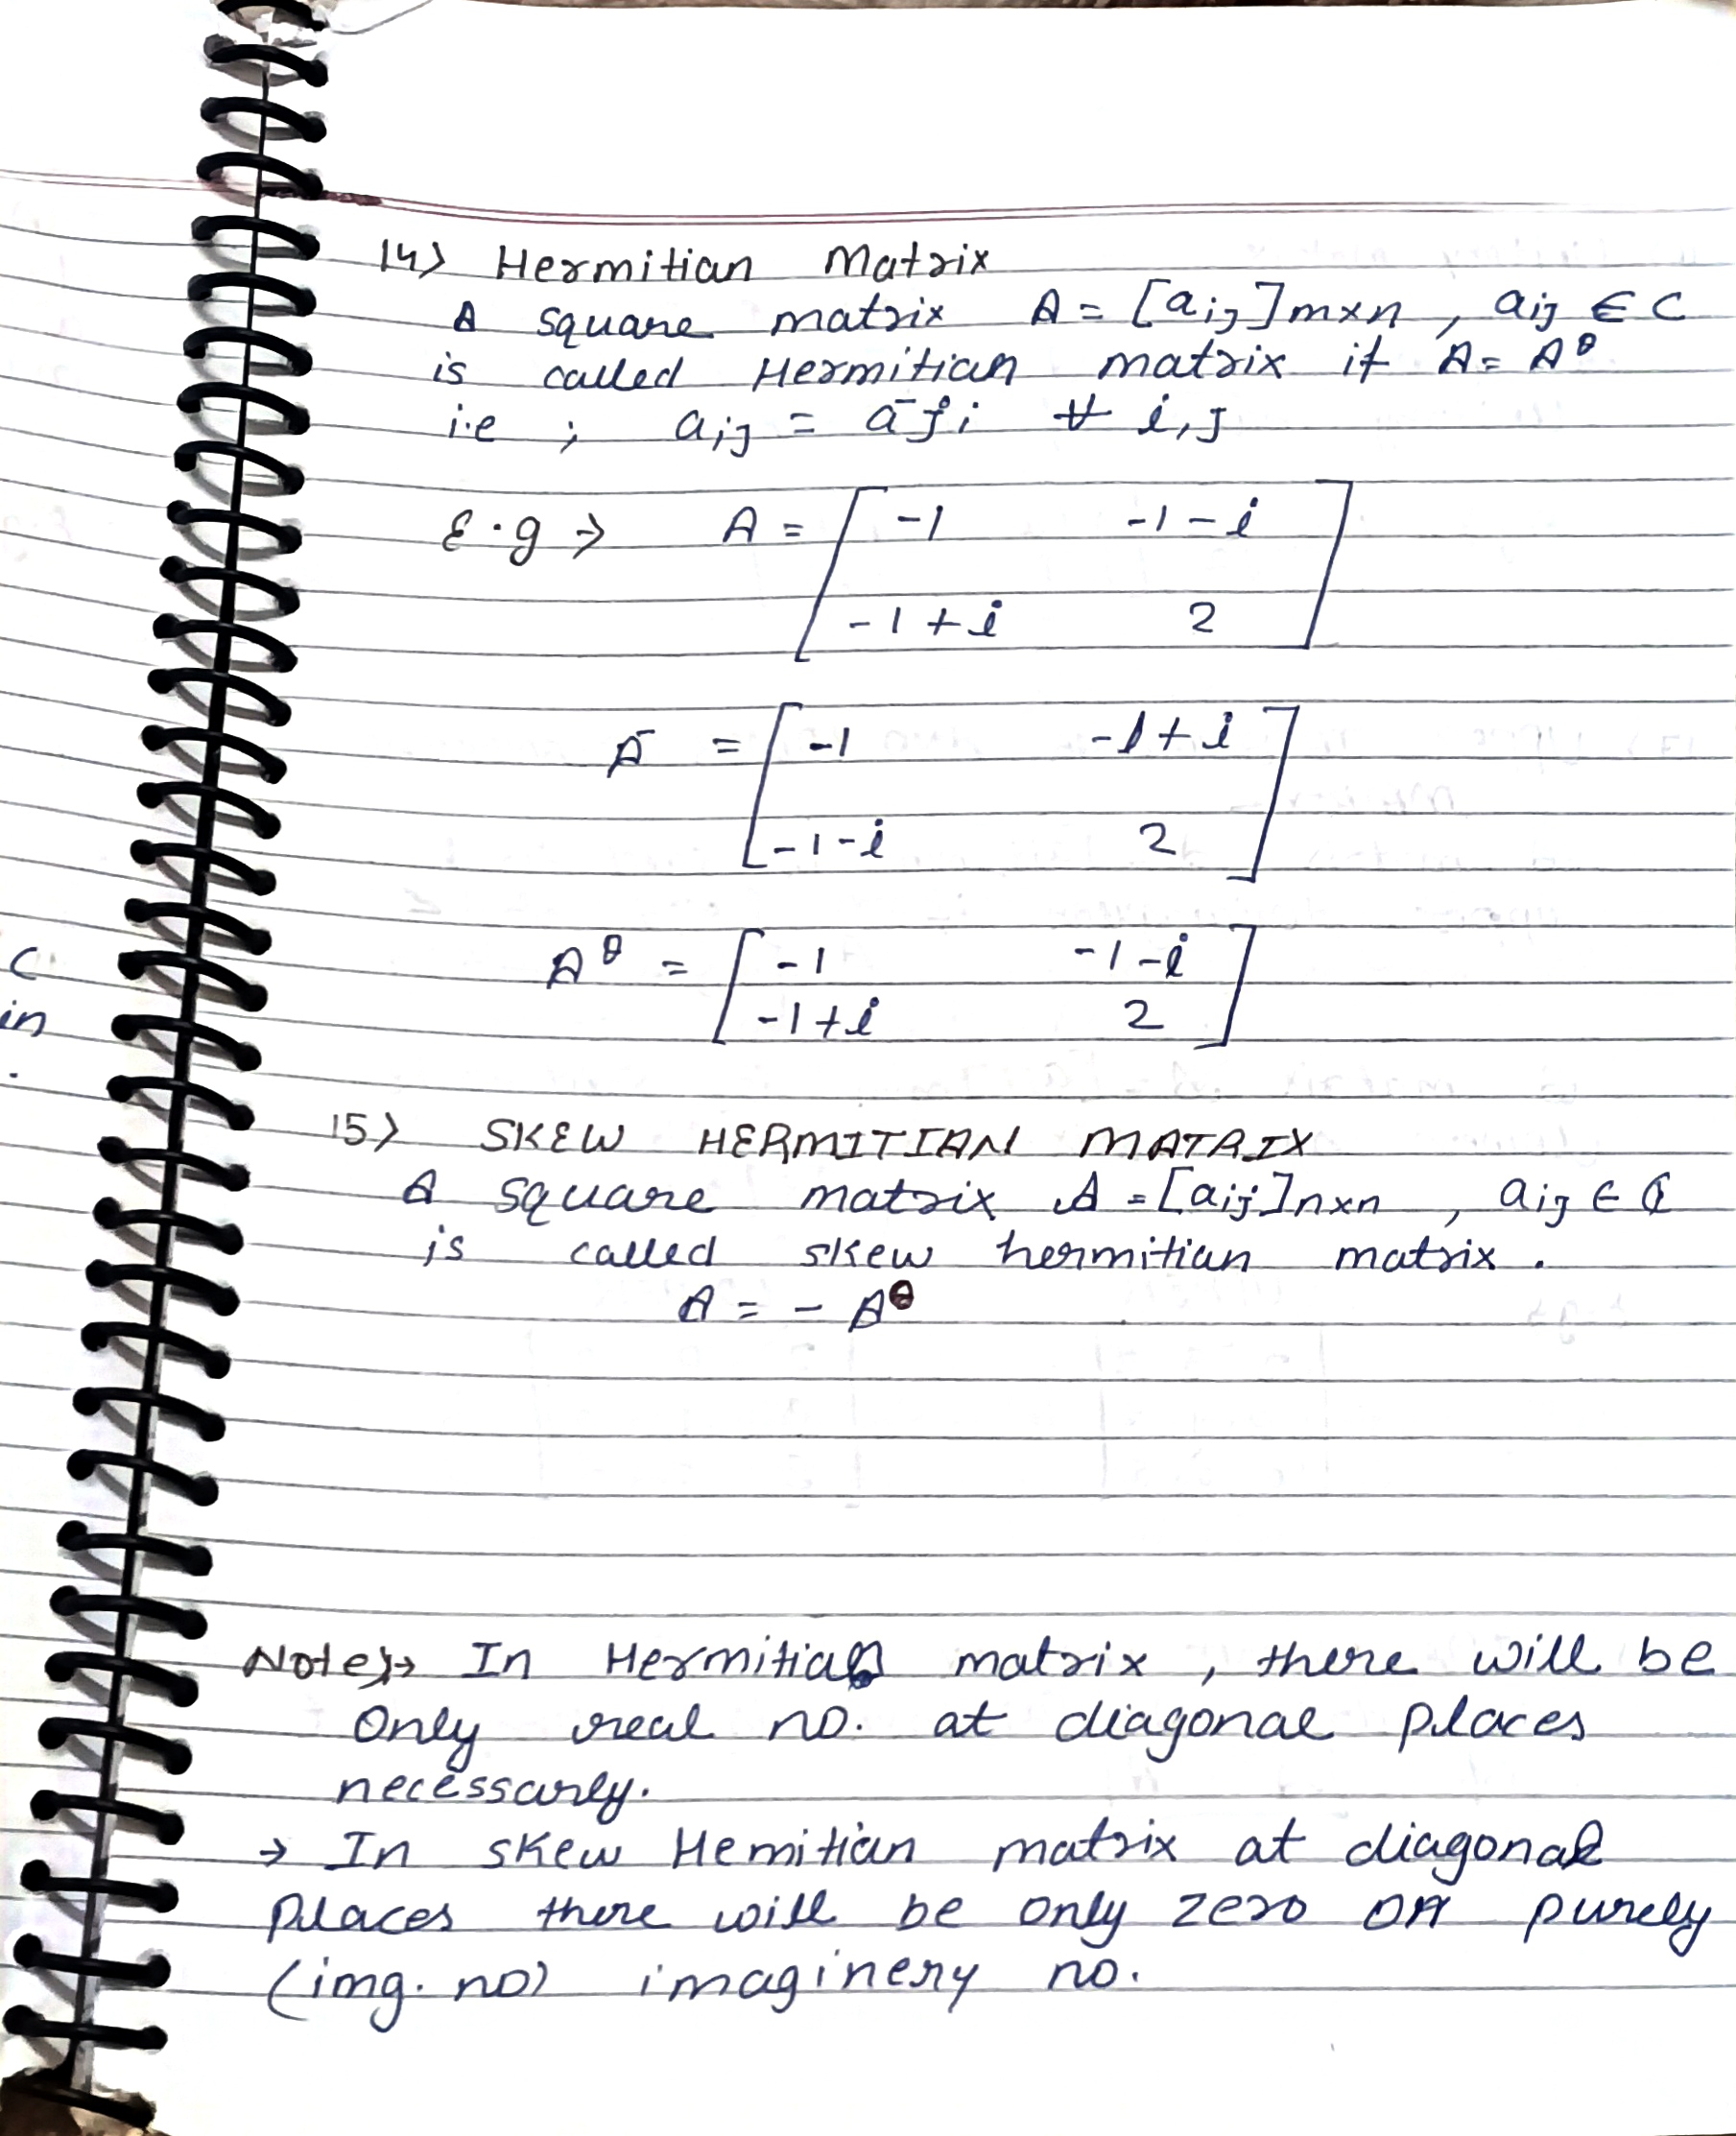 14) Hermitian Matrix
A square matrix A = [aij]m×n , aij ∈ C
is called Hermitian matrix if A = A^θ
i.e ; aij = āji ∀ i,j
E.g → A = [ -1 -1-i
-1+i 2 ]
Ā = [ -1 -1+i
-1-i 2 ]
A^θ = [ -1 -1-i
-1+i 2 ]
C
in
.
15) SKEW HERMITIAN MATRIX
A square matrix A = [aij]n×n , aij ∈ ℂ
is called skew hermitian matrix .
A = - A^θ
Note:→ In Hermitian matrix , there will be
Only real no. at diagonal places
necessarly.
→ In skew Hemitian matrix at diagonal
places there will be only zero OR purely
(img. no) imaginery no.